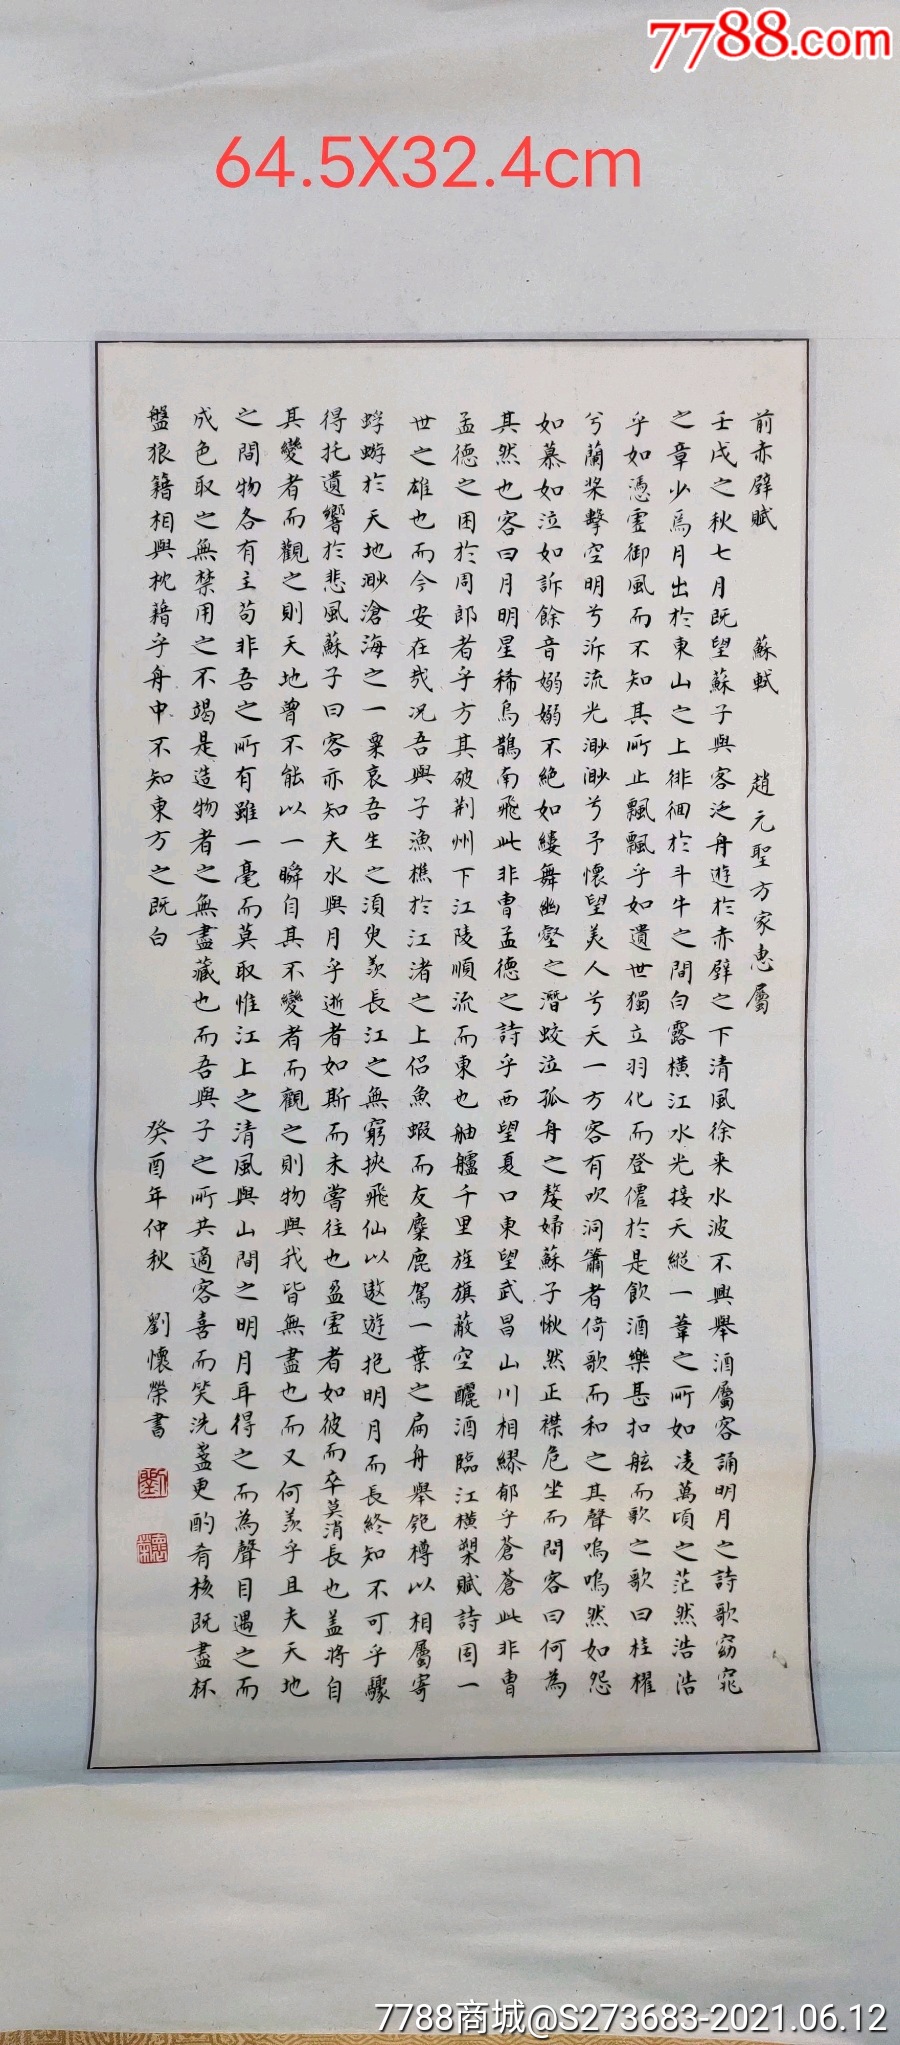 7788.com
64.5X32.4cm
前赤壁賦 蘇軾 趙元聖方家惠屬
壬戌之秋七月既望蘇子與客泛舟遊於赤壁之下清風徐来水波不興舉酒屬客誦明月之詩歌窈窕
之章少焉月出於東山之上徘徊於斗牛之間白露橫江水光接天縱一葦之所如凌萬頃之茫然浩浩
乎如馮虛御風而不知其所止飄飄乎如遺世獨立羽化而登僊於是飲酒樂甚扣舷而歌之歌曰桂櫂
兮蘭槳擊空明兮泝流光渺渺兮予懷望美人兮天一方客有吹洞簫者倚歌而和之其聲嗚嗚然如怨
如慕如泣如訴餘音嫋嫋不絕如縷舞幽壑之潛蛟泣孤舟之嫠婦蘇子愀然正襟危坐而問客曰何為
其然也客曰月明星稀烏鵲南飛此非曹孟德之詩乎西望夏口東望武昌山川相繆郁乎蒼蒼此非曹
孟德之困於周郎者乎方其破荆州下江陵順流而東也舳艫千里旌旗蔽空釃酒臨江橫槊賦詩固一
世之雄也而今安在哉况吾與子漁樵於江渚之上侣魚蝦而友麋鹿駕一葉之扁舟舉匏樽以相屬寄
蜉蝣於天地渺滄海之一粟哀吾生之須臾羡長江之無窮挾飛仙以遨遊抱明月而長終知不可乎驟
得托遺響於悲風蘇子曰客亦知夫水與月乎逝者如斯而未嘗往也盈虛者如彼而卒莫消長也盖將自
其變者而觀之則天地曾不能以一瞬自其不變者而觀之則物與我皆無盡也而又何羡乎且夫天地
之間物各有主苟非吾之所有雖一毫而莫取惟江上之清風與山間之明月耳得之而為聲目遇之而
成色取之無禁用之不竭是造物者之無盡藏也而吾與子之所共適客喜而笑洗盞更酌肴核既盡杯
盤狼籍相與枕藉乎舟中不知東方之既白 癸酉年仲秋 劉懷榮書
劉
懷榮
7788商城@S273683-2021.06.12